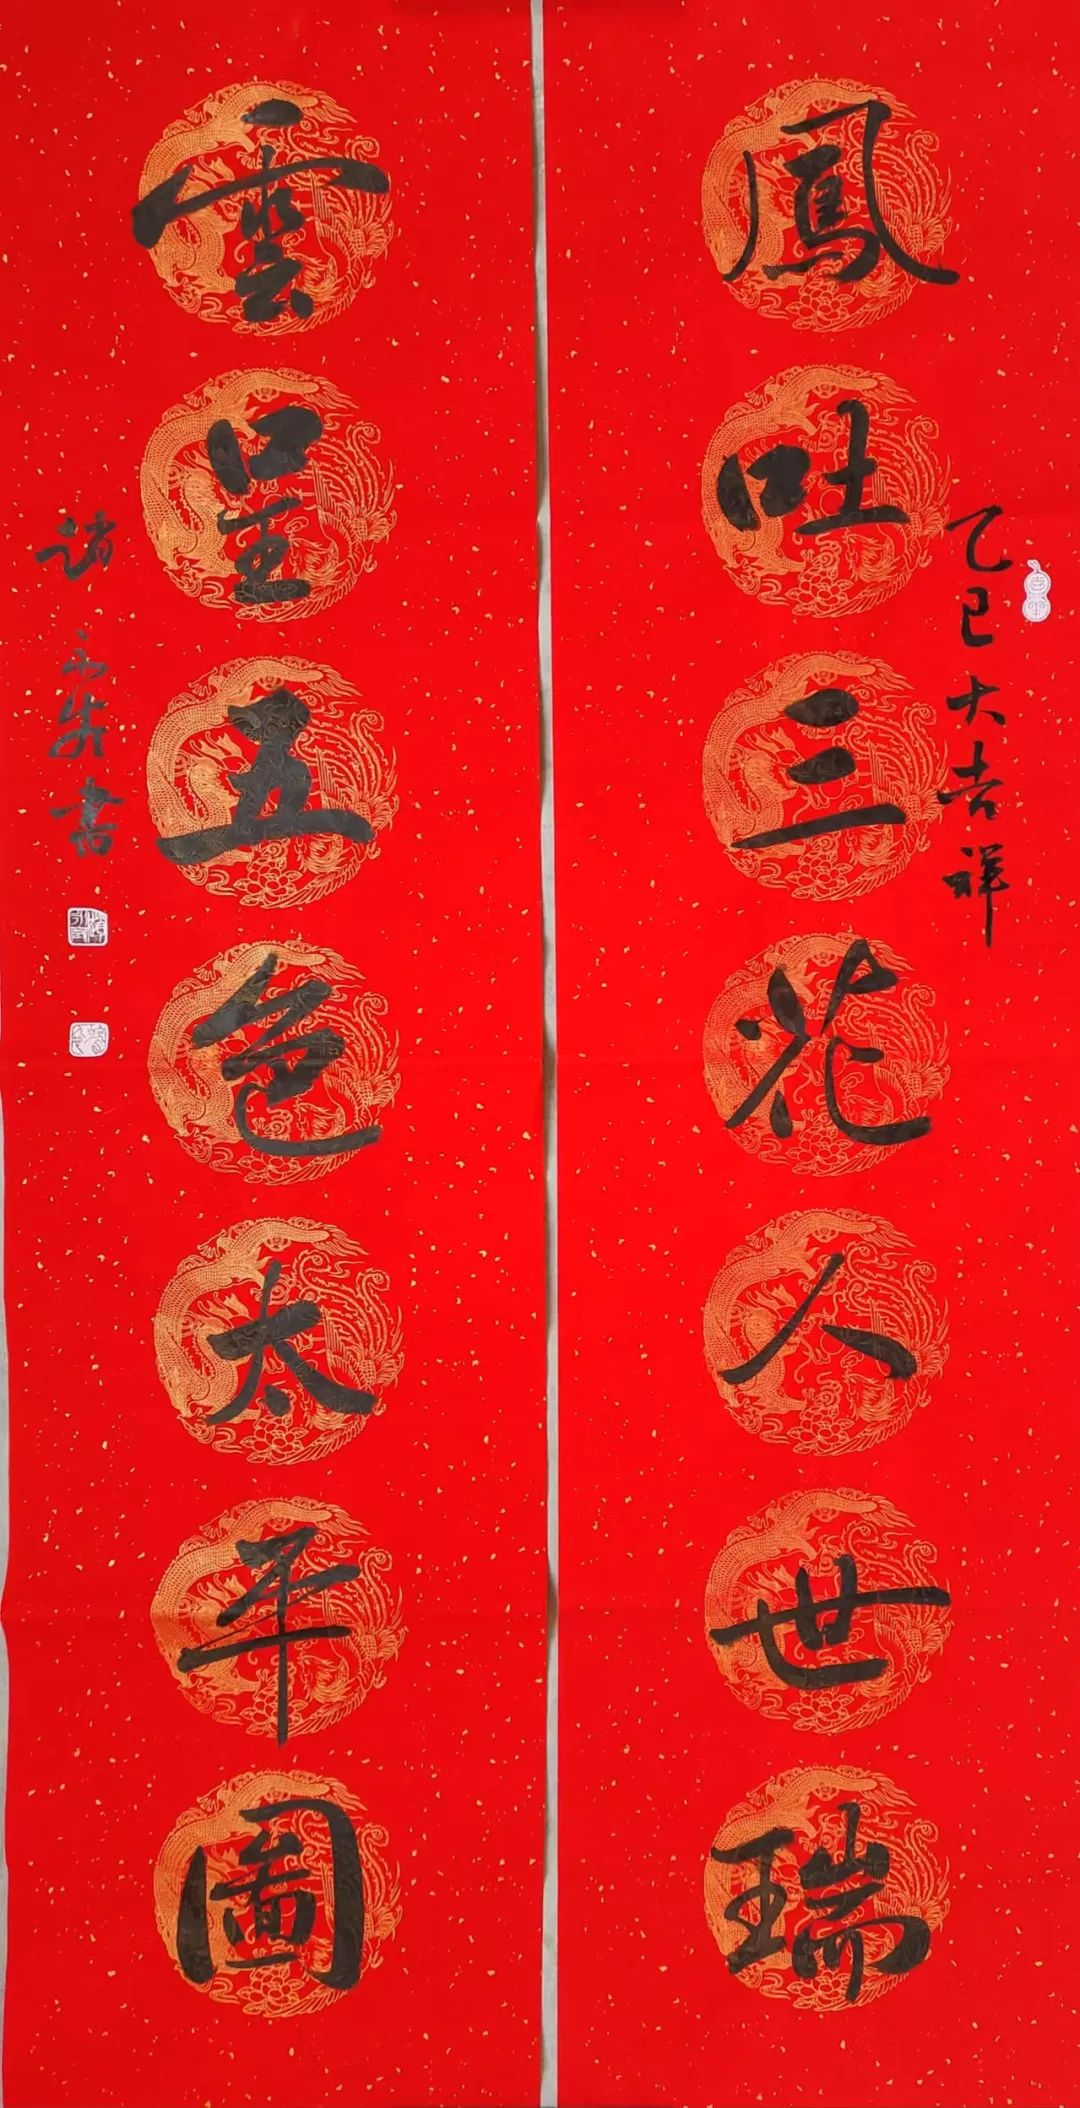 鳳吐三花人世瑞
乙巳大吉祥
雲呈五色太平圖
永生書